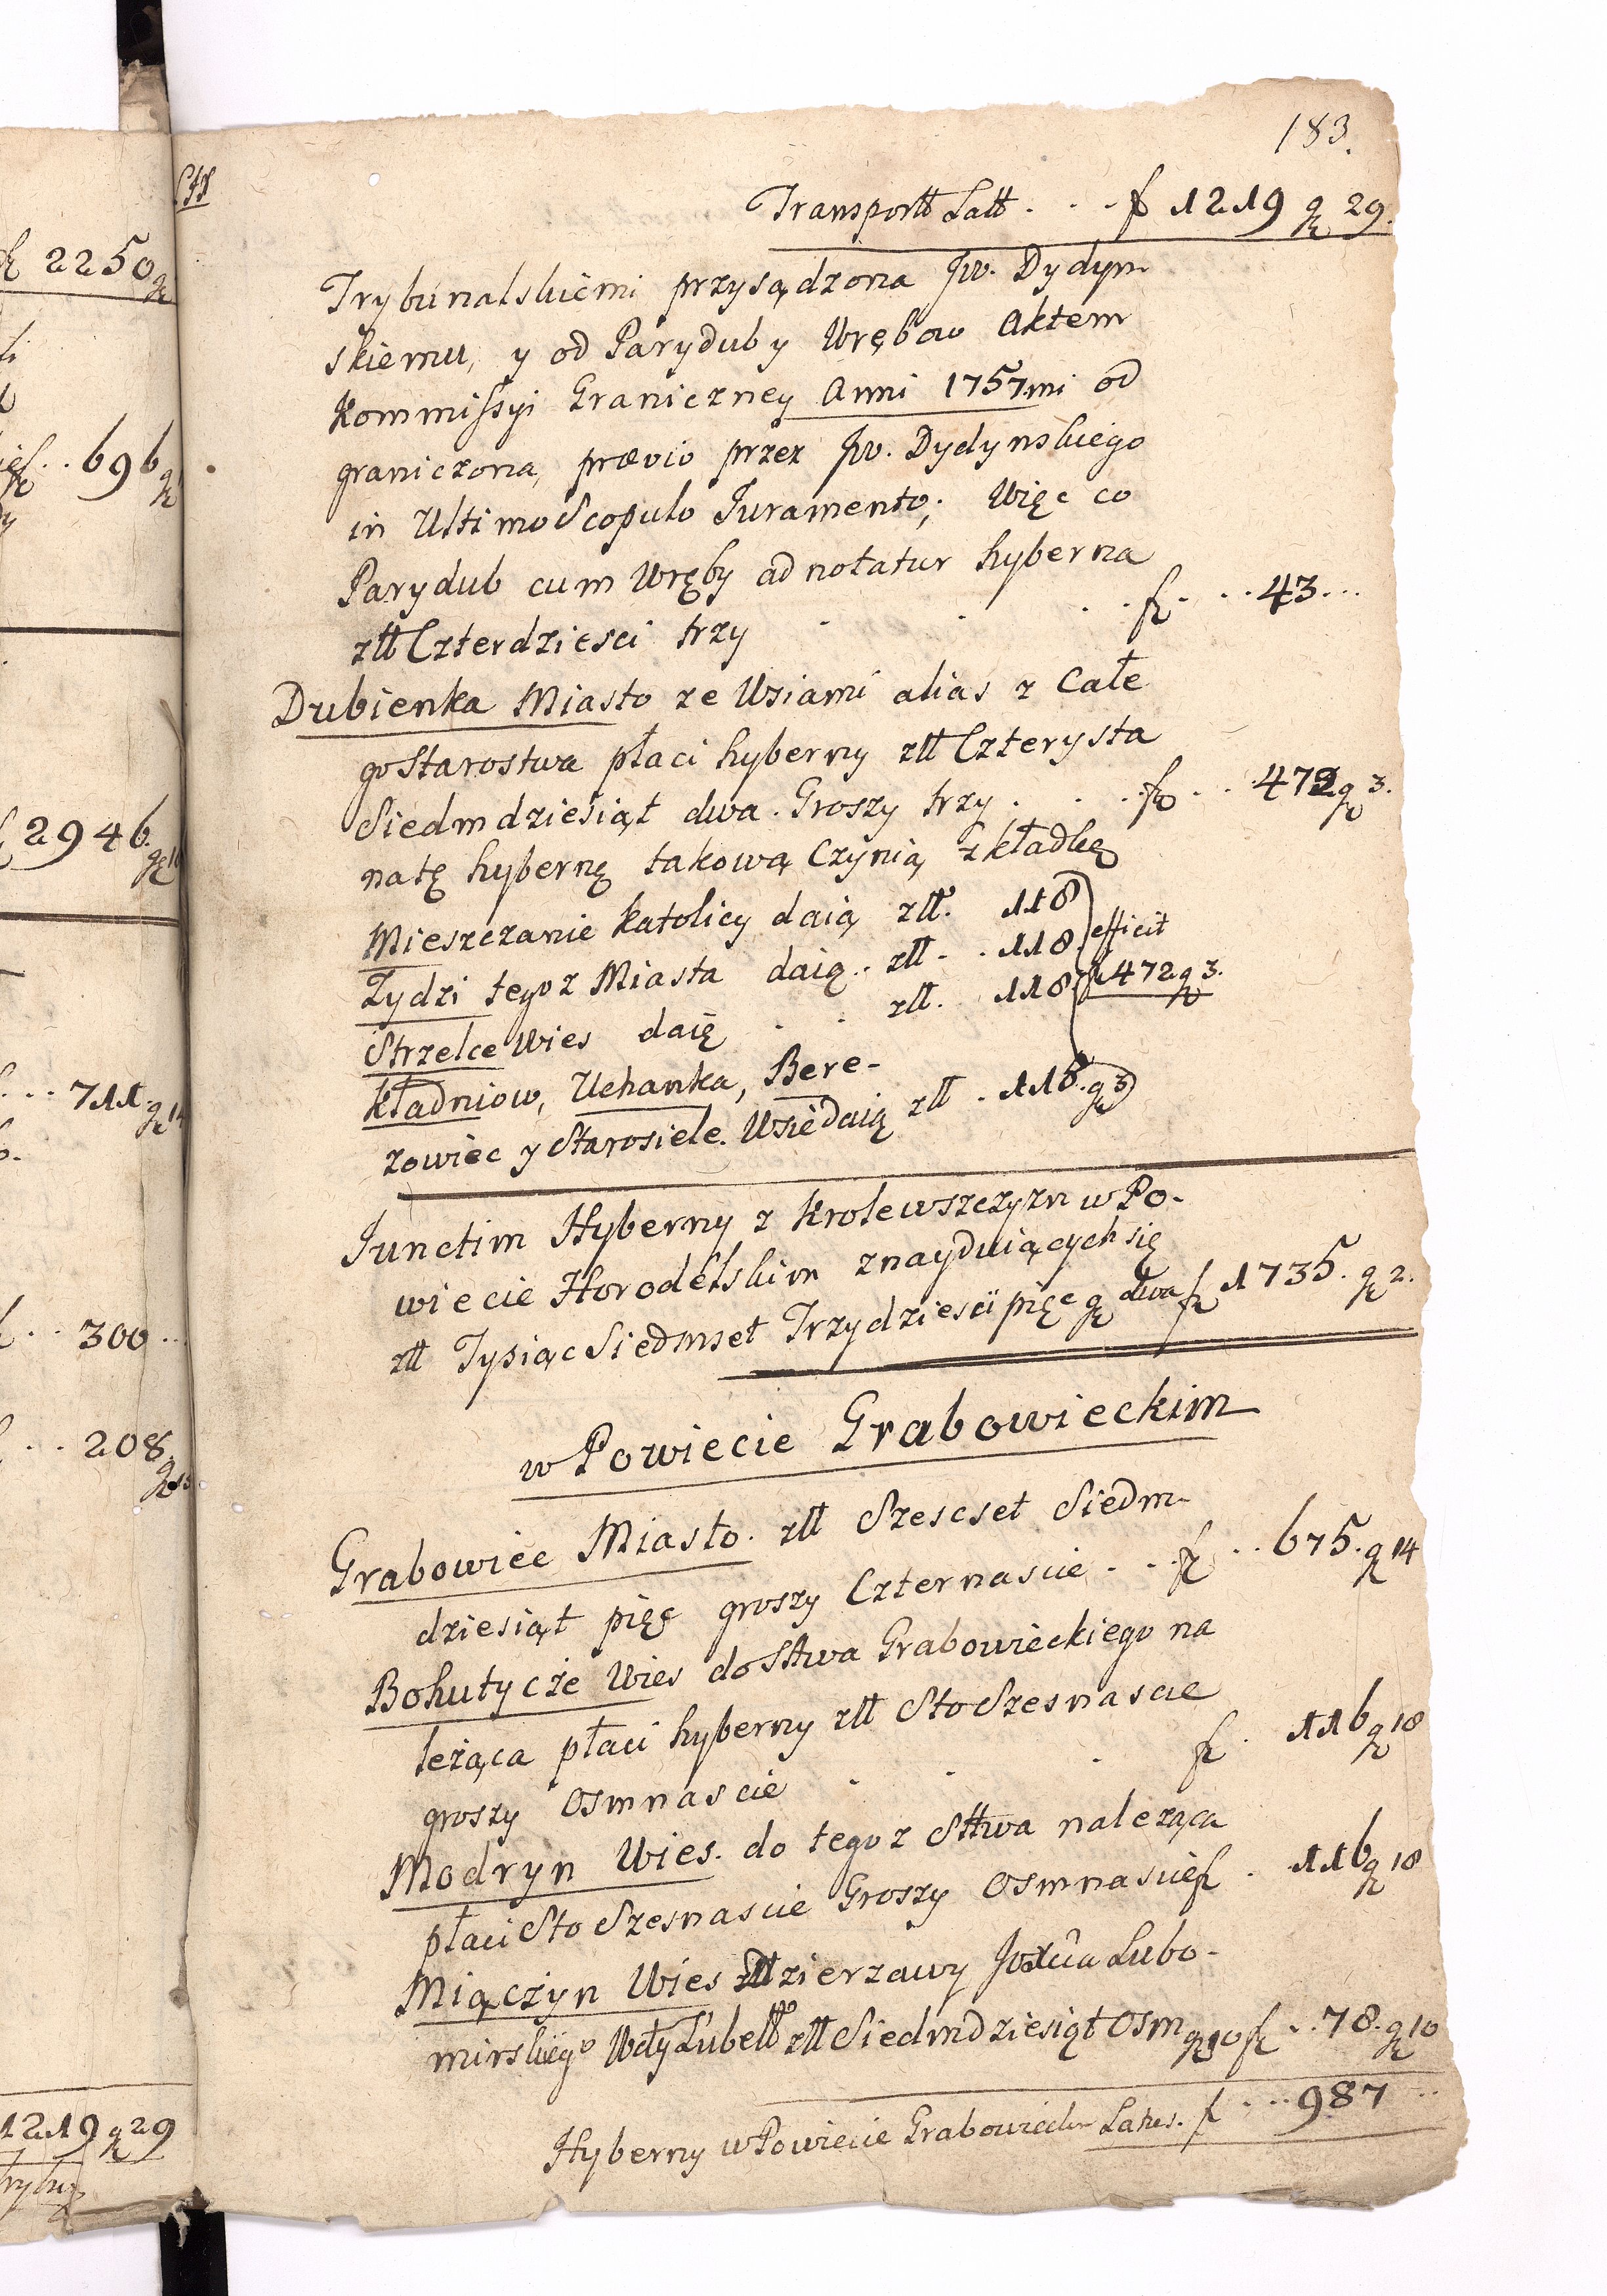 183.
Transportt Latt . . . f 1219 gr 29.
Trybunalskiemi przysądzona Jw. Dydyn
skiemu, y od Paryduby Wrębow Aktem
Kommissyi Graniczney Anni 1757mi od
graniczona, prævio przez Jw. Dydynskiego
in Ultimo Scopulo Juramento; Więc co
Parydub cum Wręby adnotatur hyberna
złł Czterdziesci trzy . . . . . f . . . 43 . . .
Dubienka Miasto ze Wsiami alias z Całe
go Starostwa płaci hyberny złł Czterysta
Siedmdziesiąt dwa. Groszy trzy . . . f . . . 472 gr 3.
natę hybernę takową Czynią zkładkę
Mieszczanie Katolicy daią złł. 118
Zydzi tegoz Miasta daią . . złł . . 118. efficit
Strzelce Wies daię . . złł. 118 f 472 gr 3.
Kładniow, Uchanka, Bere-
zowiec y Starosiele. Wsie daią złł . 118. gr 3
Junctim Hyberny z Krolewszczyzn w Po-
wiecie Horodelskim znayduiących się
złł Tysiąc Siedmset Trzydziesci pięc gr dwa f 1735. gr 2.
w Powiecie Grabowieckim
Grabowiec Miasto. złł Szescset Siedm-
dziesiąt pięc groszy Czternascie . . . f . . 675. gr 14
Bohutycze Wies do Sttwa Grabowieckiego na
leżąca płaci hyberny złł Sto Szesnascie
groszy Osmnascie . . . f . 116 gr 18
Modryn Wies. do tegoz Sttwa naleząca
płaci Sto Szesnascie Groszy Osmnascie f . 116 gr 18
Miączyn Wies dzierzawy Lubo-
mirskiego Wdy Lubell złł Siedmdziesiąt Osm gr 10 f . . 78. gr 10
Hyberny w Powiecie Grabowieckim Latus. f . . . . 987 . .
2250 gr
696 gr
2946. gr
. . . 711. gr 14
. . 300 . . .
. . . 208. gr
1219 gr 29